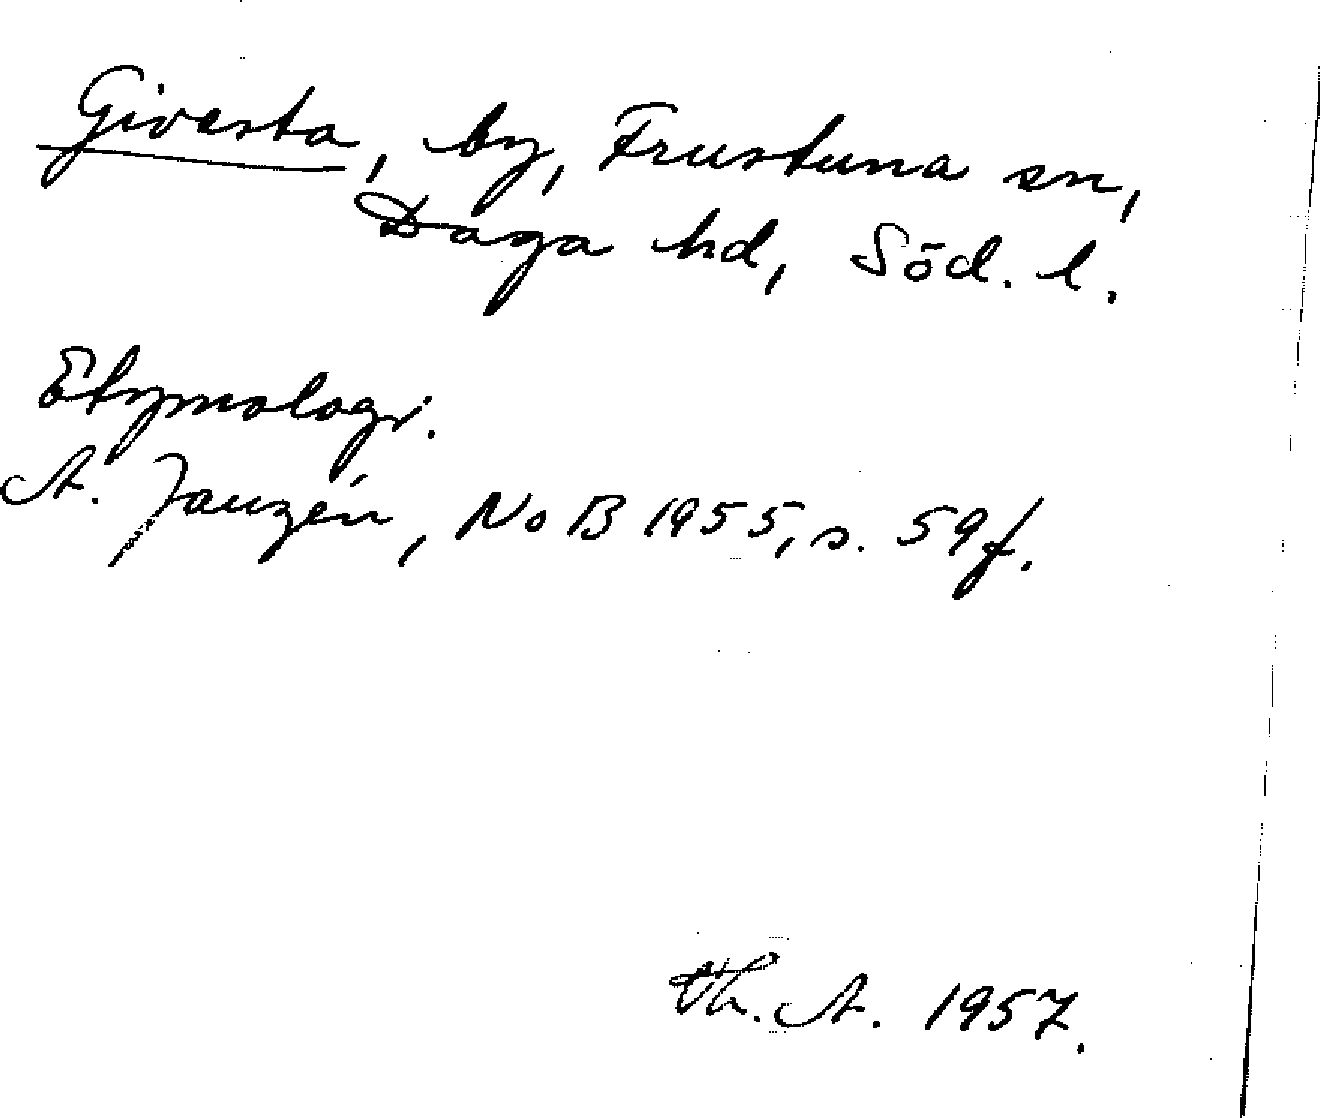 Givesta, by, Frustuna sn,
Daga hd, Söd. l.
Etymologi.
A. Janzén, NoB 1955, s. 59f.
Th. A. 1957.